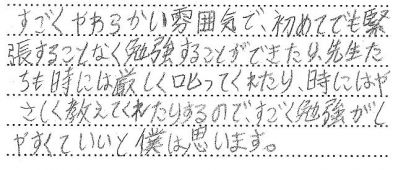 すごくやわらかい雰囲気で、初めてでも緊
張することなく勉強することができたり、先生た
ちも時には厳しく叱ってくれたり、時にはや
さしく教えてくれたりするので、すごく勉強がし
やすくていいと僕は思います。